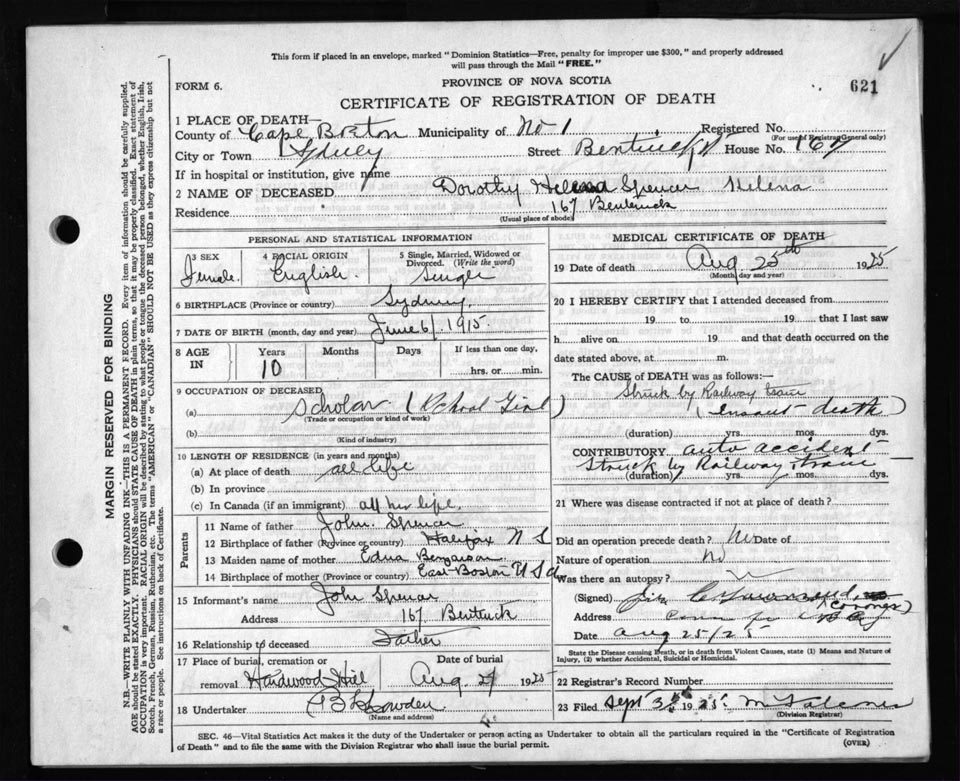 This form if placed in an envelope, marked "Dominion Statistics—Free, penalty for improper use $300," and properly addressed
will pass through the Mail "FREE."
FORM 6.
PROVINCE OF NOVA SCOTIA
621
CERTIFICATE OF REGISTRATION OF DEATH
1 PLACE OF DEATH—
County of Cape Breton Municipality of No 1 Registered No.
(For use of Registrar General only)
City or Town Sydney Street Bentinck St House No. 167
If in hospital or institution, give name
2 NAME OF DECEASED Dorothy Helena Spencer Helena
Residence 167 Bentinck
(Usual place of abode)
PERSONAL AND STATISTICAL INFORMATION
3 SEX Female
4 RACIAL ORIGIN English
5 Single, Married, Widowed or Divorced. (Write the word) Single
6 BIRTHPLACE (Province or country) Sydney
7 DATE OF BIRTH (month, day and year) June 6/1915
8 AGE IN Years 10 Months Days If less than one day, hrs. or min.
9 OCCUPATION OF DECEASED
(a) Scholar (School Girl)
(Trade or occupation or kind of work)
(b)
(Kind of industry)
10 LENGTH OF RESIDENCE (in years and months)
(a) At place of death all life
(b) In province
(c) In Canada (if an immigrant) all her life.
Parents
11 Name of father John Spencer
12 Birthplace of father (Province or country) Halifax N S
13 Maiden name of mother Edna
14 Birthplace of mother (Province or country) East Boston U S a
15 Informant's name John Spencer
Address 167 Bentinck
16 Relationship to deceased Father
17 Place of burial, cremation or removal Hardwood Hill
Date of burial Aug 27 1925
18 Undertaker
(Name and address)
MEDICAL CERTIFICATE OF DEATH
19 Date of death Aug 25th 1925
(Month, day and year)
20 I HEREBY CERTIFY that I attended deceased from
19 to 19 that I last saw
h alive on 19 and that death occurred on the
date stated above, at m.
The CAUSE of DEATH was as follows:—
Struck by Railway train
(Instant death)
(duration) yrs. mos. dys.
CONTRIBUTORY auto accident
Struck by Railway train
(duration) yrs. mos. dys.
21 Where was disease contracted if not at place of death?
Did an operation precede death? No Date of
Nature of operation No
Was there an autopsy?
(Signed) (Coroner)
Address
Date Aug 25/25
State the Disease causing Death, or in death from Violent Causes, state (1) Means and Nature of
Injury, (2) whether Accidental, Suicidal or Homicidal.
22 Registrar's Record Number
23 Filed Sept 3 1925
(Division Registrar)
SEC. 46—Vital Statistics Act makes it the duty of the Undertaker or person acting as Undertaker to obtain all the particulars required in the "Certificate of Registration
of Death" and to file the same with the Division Registrar who shall issue the burial permit.
(OVER)
MARGIN RESERVED FOR BINDING
N.B.—WRITE PLAINLY WITH UNFADING INK—THIS IS A PERMANENT RECORD. Every item of information should be carefully supplied.
AGE should be stated EXACTLY. PHYSICIANS should STATE CAUSE OF DEATH in plain terms, so that it may be properly classified. Exact statement of
OCCUPATION is very important. RACIAL ORIGIN will be described by stating to what people or tongue the deceased person belonged, whether English, Irish,
Scotch, French, German, Russian, Ruthenian, etc. The terms "AMERICAN" or "CANADIAN" SHOULD NOT BE USED as they express citizenship but not
a race or people. See instructions on back of Certificate.